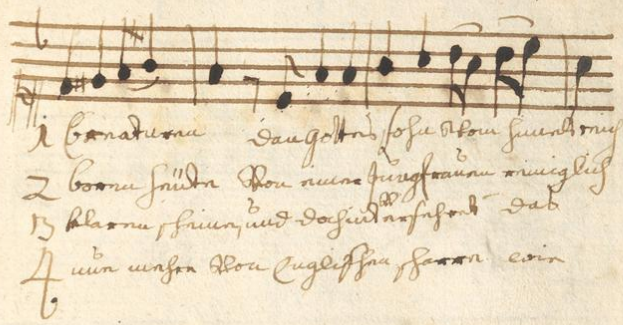 1 Creaturen dan Gottes sohn Vom himelreich
2 boren heüte Von einer Jungfrauen reiniglich
3 klaren scheine, und doch unversehret das
4 nun mehr Von Englischen scharren wie